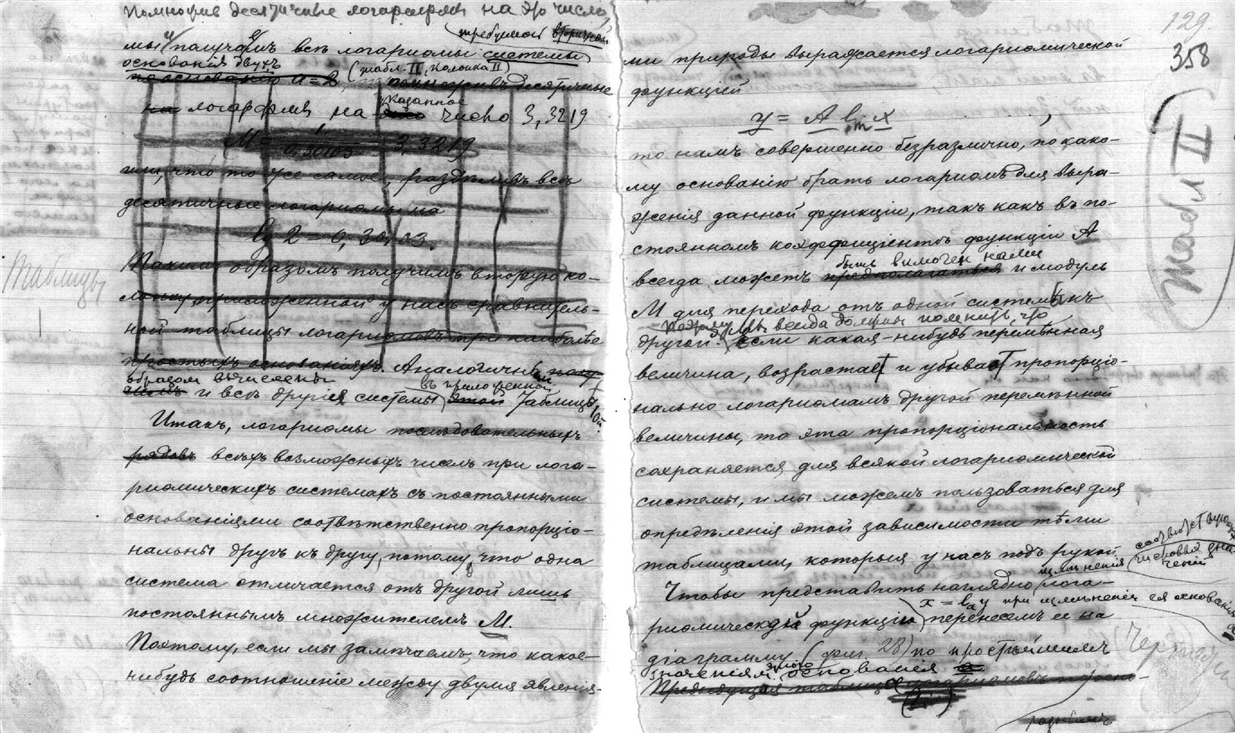 Помноживъ десятичные логарифмы на это число,
мы и получимъ всѣ логариѳмы требуемой вторичной системы
основанiя двухъ
по основанию a = 2, (табл. II, колонка II) помноживъ десятичные
на логарѳмы на указанное это число 3,3219
M = 3,3219
или, что то же самое, раздѣливъ всѣ
десятичные логариѳмы на
lg 2 = 0,30103.
Такимъ образомъ получимъ вторую ко-
лонку приложенной у насъ сравнитель-
ной таблицы логариѳмовъ при наиболѣе
простыхъ основанiяхъ. Аналогичнымъ
образомъ вычислены
и всѣ другiя системы въ приложенной этой таблицѣ
Итакъ, логариѳмы последовательныхъ
рядовъ всѣхъ возможныхъ чиселъ при лога-
риѳмическихъ системахъ съ постоянными
основанiями соотвѣтственно пропорцiо-
нальны другъ къ другу, потому что одна
система отличается отъ другой лишь
постояннымъ множителемъ M.
Поэтому, если мы замѣчаемъ, что какое-
нибудь соотношенiе между двумя явленiя-
Таблицы
129.
358
Табл II
ми природы выражается логариѳмической
функцiей
y = A lm x,
то намъ совершенно безразлично, по како-
му основанiю брать логариѳмъ для выра-
женiя данной функцiи, такъ какъ въ по-
стоянномъ коэффицiентѣ функцiи A
всегда можетъ быть вымоген нами предполагаться и модуль
M для перехода отъ одной системы къ
другой. Поэтому мы всегда должны помнить, что
если какая-нибудь перемѣнная
величина, возрастает и убывает пропорцiо-
нально логариѳмамъ другой перемѣнной
величины, то эта пропорцiональность
сохраняется для всякой логариѳмической
системы, и мы можемъ пользоваться для
опредѣленiя этой зависимости тѣми
таблицами, которыя у насъ подъ рукой.
Чтобы представить наглядно измѣненiя лога-
соотвѣтствующiя числовыя зна-
ченiй
x = la y при измѣненiи ея основанiя
риѳмической функцiи перенесемъ ее на
дiаграмму (фиг. 28) по простѣйшимъ
значенiямъ этого основанiя a
Предыдущая таблица логариѳмовъ